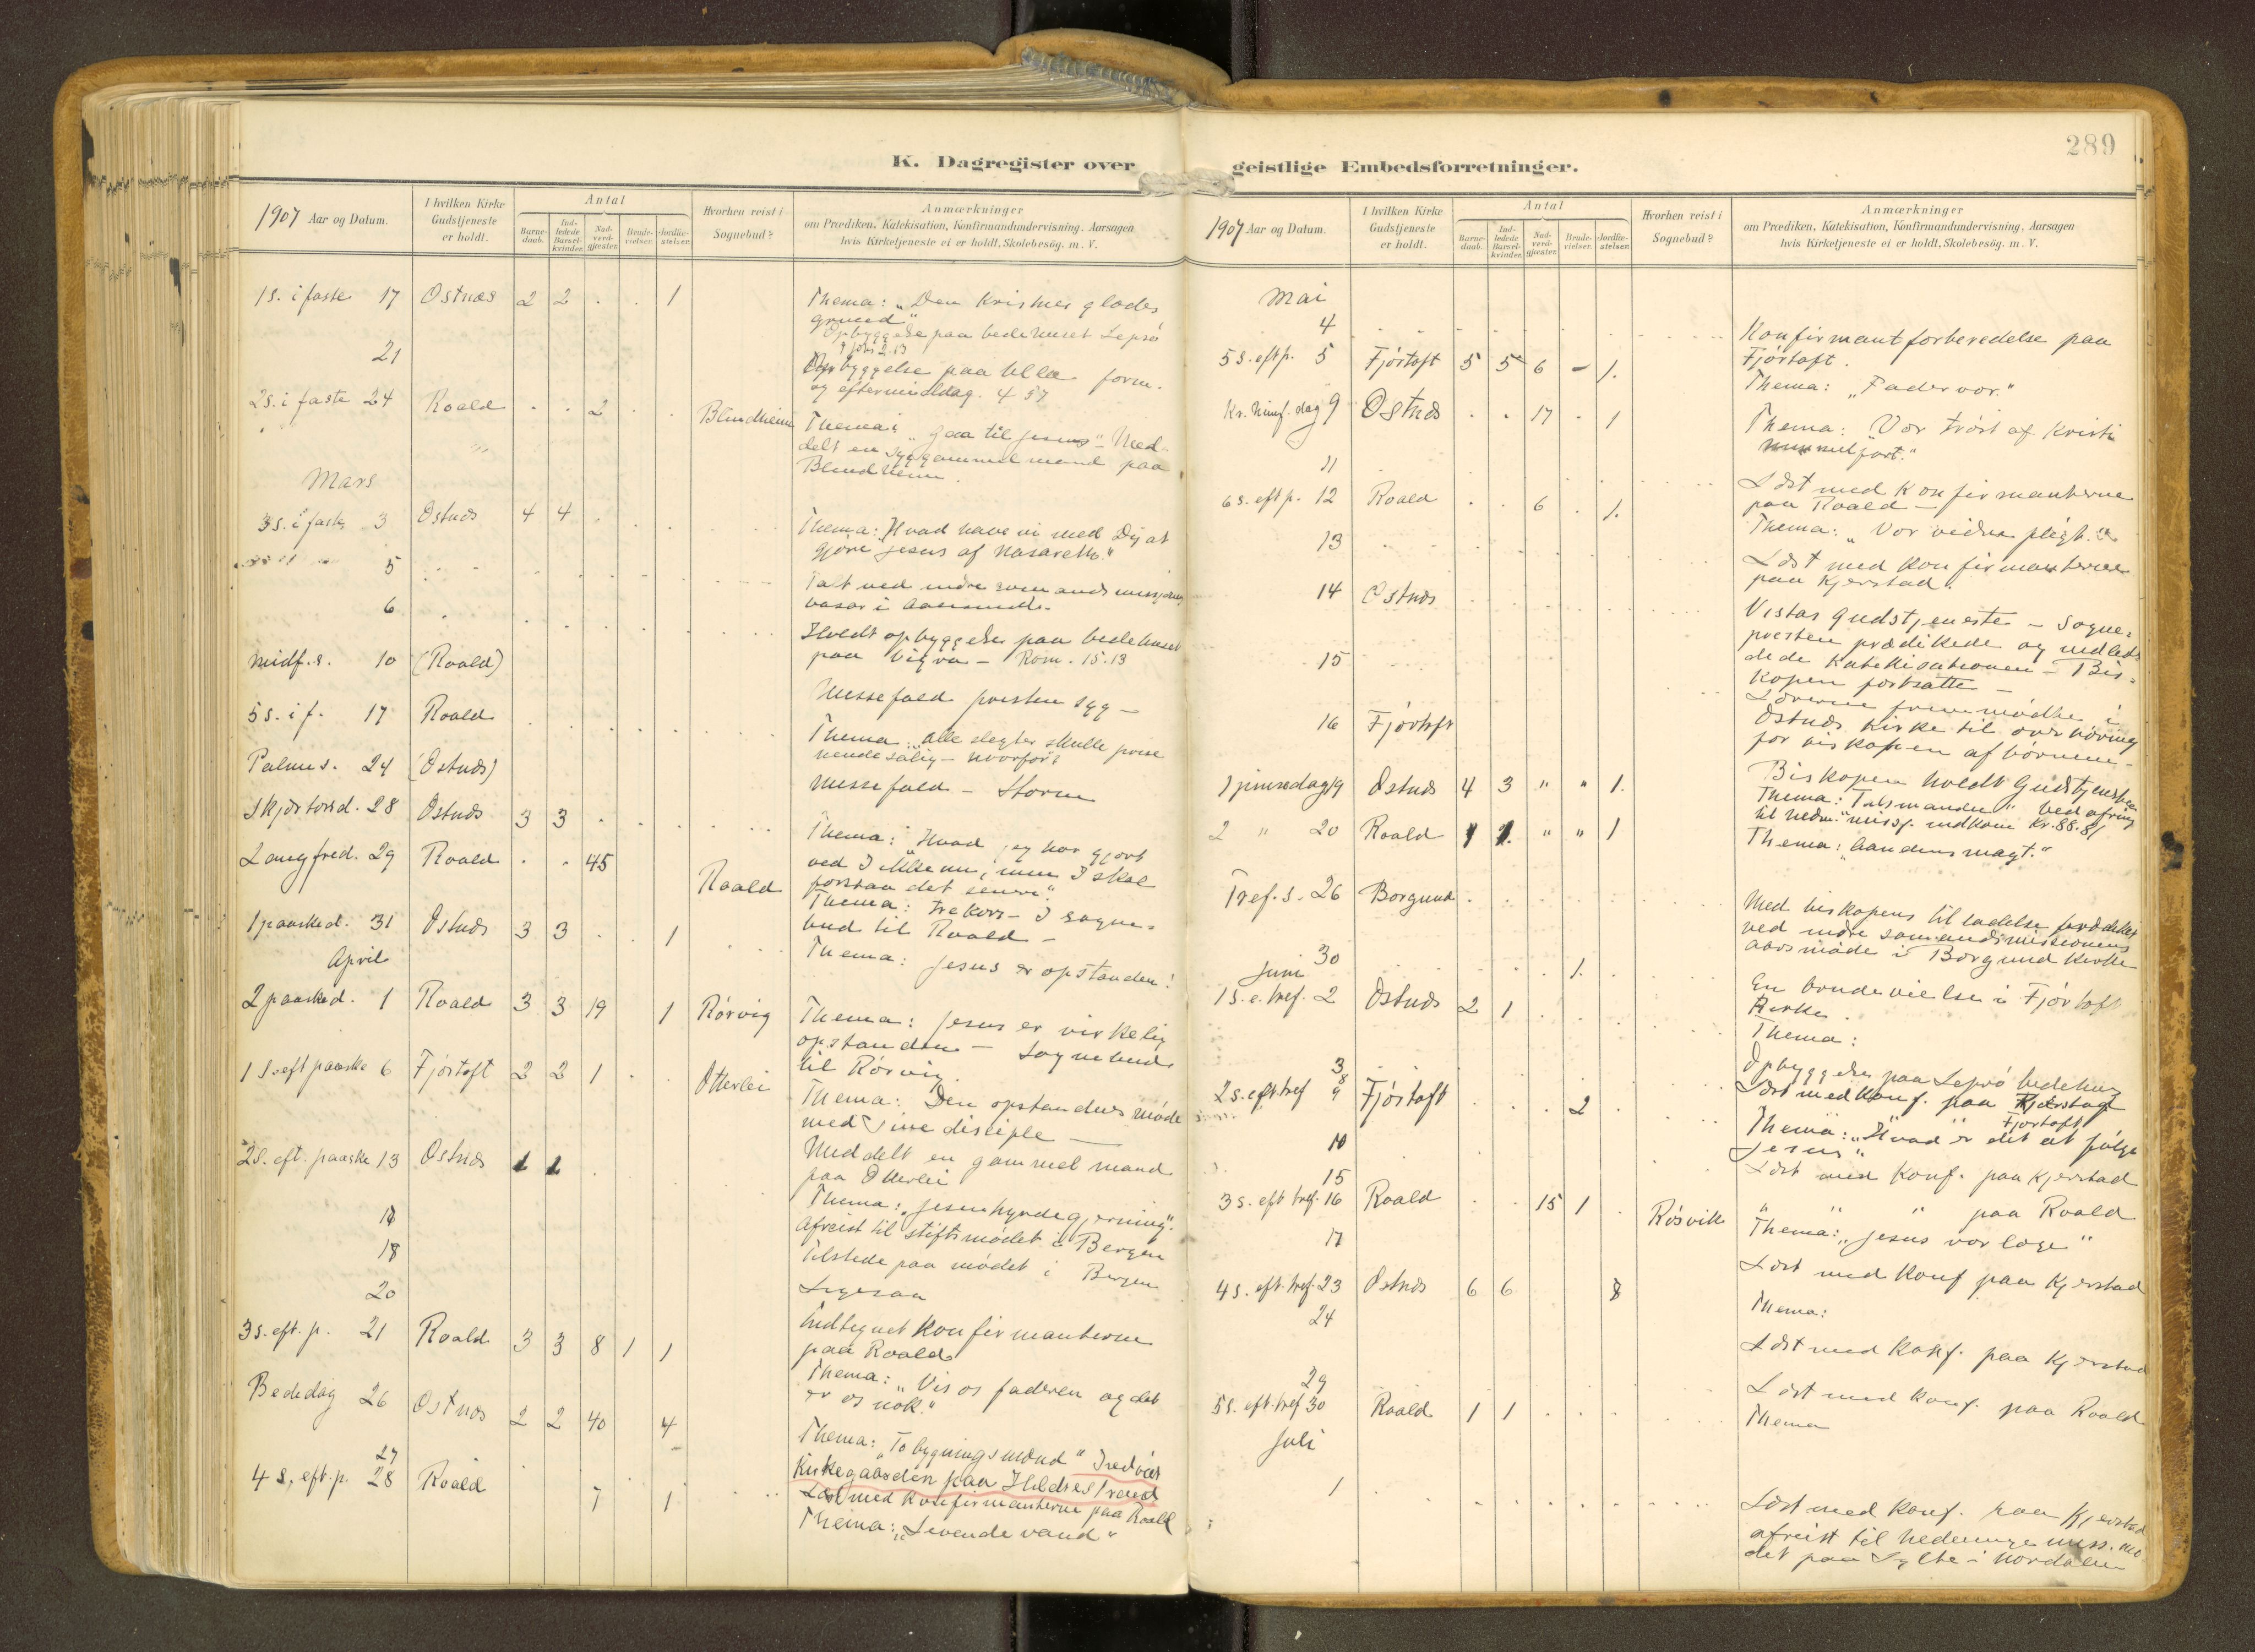 289
K. Dagregister over geistlige Embedsforretninger.
1907 Aar og Datum.
I hvilken Kirke Gudstjeneste er holdt.
Antal
Barne-daab.
Ind-ledede Barsel-kvinder.
Nad-verd-gjester.
Brude-vielser.
Jordfæ-stelser.
Hvorhen reist i Sognebud?
Anmærkninger
om Prædiken, Katekisation, Konfirmandundervisning. Aarsagen
hvis Kirketjeneste ei er holdt, Skolebesög. m. V.
1 s. i faste 17 Østnæs 2 2 . . 1 Thema: "Den kristnes glædes
grund"
Opbyggelse paa bedehuset Lepsø
21
Opbyggelse paa Ulla form.
og eftermiddag.
2 s. i faste 24 Roald . . 2 . . Blindheim Thema: "Gaa til Jesus" - Med-
delt en syg gammel mand paa
Blindheim.
Mars
3 s. i faste 3 Østnæs 4 4 . . . Thema: "Hvad have vi med Dig at
gjøre Jesus af Nasareth."
5 Talt ved indre sømandsmissions
basar i Aalesund.
6 Holdt opbyggelse paa bedehuset
paa Vigra - Rom. 15.13
Midf.s. 10 (Roald) Messefald presten syg -
5 s. i f. 17 Roald Thema "alle slegter skulle prise
hende salig - hvorfor?
Palmes. 24 (Østnæs) Messefald - Storm
Skjærtorsd. 28 Østnæs 3 3 Thema: "Hvad jeg har gjort
ved I ikke nu, men I skal
forstaa det senere."
Langfred. 29 Roald . . 45 Roald Thema: trekors - I sogne-
bud til Roald -
1 paasked. 31 Østnæs 3 3 . . 1 Thema: Jesus er opstanden!
April
2 paasked. 1 Roald 3 3 19 1 Rørvig Thema: Jesus er virkelig
opstanden - Sognebud
til Rørvig.
1 s. eft paaske 6 Fjørtoft 2 2 1 . . Otterlei Thema: Den opstandnes møde
med sine disciple -
Meddelt en gammel mand
paa Otterlei
2 s. eft. paaske 13 Østnæs 1 1 Thema: "Jesu hyrdegjerning".
17 Afreist til stiftsmødet i Bergen
18 Tilstede paa mødet i Bergen
Ligesaa
20 Indtegnet konfirmanterne
paa Roald
3 s. eft. p. 21 Roald 3 3 8 1 1 Thema: "Vis os faderen og det
er os nok."
Bededag 26 Østnæs 2 2 40 4 Thema: "To bygningsmænd" Indviet
Kirkegaarden paa Hildrestrand
27 Læst med konfirmanterne paa Roald
4 s. eft. p. 28 Roald 7 1 Thema: "Levende vand"
1907 Aar og Datum.
I hvilken Kirke Gudstjeneste er holdt.
Antal
Barne-daab.
Ind-ledede Barsel-kvinder.
Nad-verd-gjester.
Brude-vielser.
Jordfæ-stelser.
Hvorhen reist i Sognebud?
Anmærkninger
om Prædiken, Katekisation, Konfirmandundervisning, Aarsagen
hvis Kirketjeneste ei er holdt, Skolebesög. m. V.
Mai
4 Konfirmantforberedelse paa
Fjørtoft.
5 s. eft p. 5 Fjørtoft 5 5 6 - 1. Thema: "Fader vor."
Kr. himf. dag 9 Østnæs . . 17 . 1 Thema: Vor trøst af Kristi
himmelfart."
11 Læst med konfirmanterne
paa Roald -
6 s. eft p. 12 Roald . . 6 . 1. Thema: "Vor vidne pligt."
13 Læst med konfirmanterne
paa Kjerstad.
14 Østnæs Vistas gudstjeneste - Sogne-
presten prædikede og indled-
dede katekisationen - Bis-
kopen fortsatte -
15 Lærerne fremmødte i
Østnæs kirke til overhøring
for biskopen af børnene -
16 Fjørtoft Biskopen holdt Gudstjenesten
1 pinsedag 19 Østnæs 4 3 " " 1. Thema: Talsmanden" Ved ofring
til hedn. miss. indkom Kr. 88.81
2 " 20 Roald 1 1. " " 1 Thema: "Aandens magt."
Tref. s. 26 Borgund Med biskopens tilladelse prædiket
ved indre sømandsmissionens
aarsmøde i Borgund kirke
30 1. En brudevielse i Fjørtoft
Kirke.
Juni
1 s. e. tref. 2 Østnæs 2 1 Thema:
3 Opbyggelse paa Lepsø bedehus
8 Læst med konf. paa Kjerstad
Fjørtoft
2 s. eft. tref 9 Fjørtoft 2 Thema: "Hvad er det at følge
Jesus"
10 Læst med konf. paa Kjerstad
15 " " " paa Roald
3 s. eft tref. 16 Roald 15 1 Røsvik Thema: "Jesus vor læge"
17 Læst med konf paa Kjerstad
4 s. eft. tref. 23 Østnæs 6 6 8 Thema:
24 Læst med konf. paa Kjerstad
29 Læst med konf. paa Roald
5 s. eft. tref 30 Roald 1 1 Thema
Juli
1 Læst med konf. paa Kjerstad
afreist til hedninge miss. mø-
det paa Sylte i Nordalen